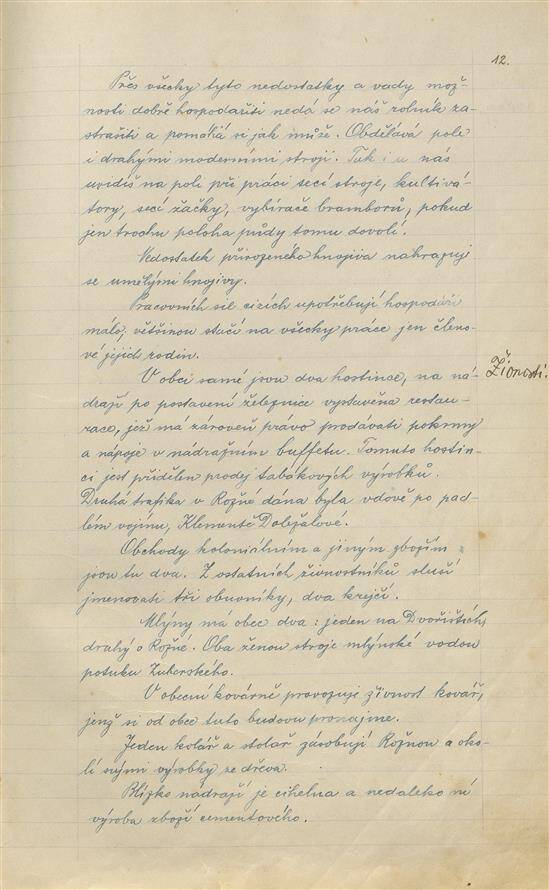 12.
Přes všecky tyto nedostatky a vady mož-
nosti dobře hospodařiti nedá se náš rolník za-
strašiti a pomáhá si jak může. Obdělává pole
i drahými moderními stroji. Tak i u nás
uvidíš na poli při práci secí stroje, kultivá-
tory, secí žačky, vybírače bramborů, pokud
jen trochu poloha půdy tomu dovolí.
Nedostatek přirozeného hnojiva nahrazují
se umělými hnojivy.
Pracovních sil cizích upotřebují hospodáři
málo, většinou stačí na všecky práce jen členo-
vé jejich rodin.
Živnosti.
V obci samé jsou dva hostince, na ná-
draží po postavení železnice vystavěna restau-
race, jež má zároveň právo prodávati pokrmy
a nápoje v nádražním buffetu. Tomuto hostin-
ci jest přidělen prodej tabákových výrobků.
Druhá trafika v Rožné dána byla vdově po pad-
lém vojínu, Klementě Dobžalové.
Obchody koloniálním a jiným zbožím
jsou tu dva. Z ostatních živnostníků sluší
jmenovati tři obuvníky, dva krejčí.
Mlýny má obec dva: jeden na Dvořištích,
druhý v Rožné. Oba ženou stroje mlýnské vodou
potoka Zuberského.
V obecní kovárně provozuje živnost kovář,
jenž si od obce tuto budovu pronajme.
Jeden kolář a stolař zásobují Rožnou a oko-
lí svými výrobky ze dřeva.
Blízko nádraží je cihelna a nedaleko ní
výroba zboží cementového.